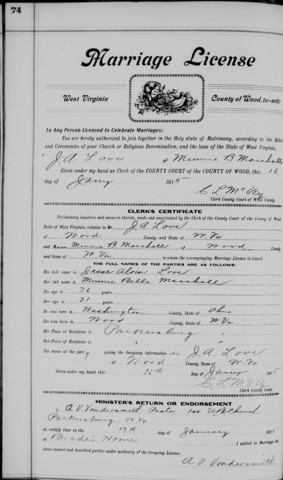 74
Marriage License
West Virginia County of Wood, to-wit:
To Any Person Licensed to Celebrate Marriages:
You are hereby authorized to join together in the Holy state of Matrimony, according to the Rites
and Ceremonies of your Church or Religious Denomination, and the laws of the State of West Virginia,
J A Love & Minnie B Marshall
Given under my hand as Clerk of the COUNTY COURT of the COUNTY OF WOOD, this 16
day of Jany 1915
C L McVey
Clerk County Court of Wood County.
CLERK'S CERTIFICATE
Preliminary inquiries and answers thereto, made and ascertained by the Clerk of the County Court of the County of Wood,
State of West Virginia, relative to Mr. J A Love
of Wood County, and State of W Va
and Miss Minnie B Marshall of Wood County
and State of W Va to whom the accompanying Marriage License is issued.
THE FULL NAMES OF THE PARTIES ARE AS FOLLOWS:
His full name is Alvin Love
Her full name is Minnie Belle Marshall
His age is 26 years
Her age is 21 years
He was born in Washington County, State of Ohio
She was born in Wood County, State of W Va
His Place of Residence is Parkersburg
Her Place of Residence is " "
The name of the party giving the foregoing information is J A Love
of Wood County, State of W Va
Given under my hand this 16th day of Jany 1915
C L McVey
Clerk County Court.
MINISTER'S RETURN OR ENDORSEMENT
I, A. V. Vondersmith Pastor 1st U B Church
Parkersburg W Va
do certify that on the 17th day of January 1915
at Bride's Home I united in Marriage the
above named and described parties under authority of the foregoing License.
A. V. Vondersmith